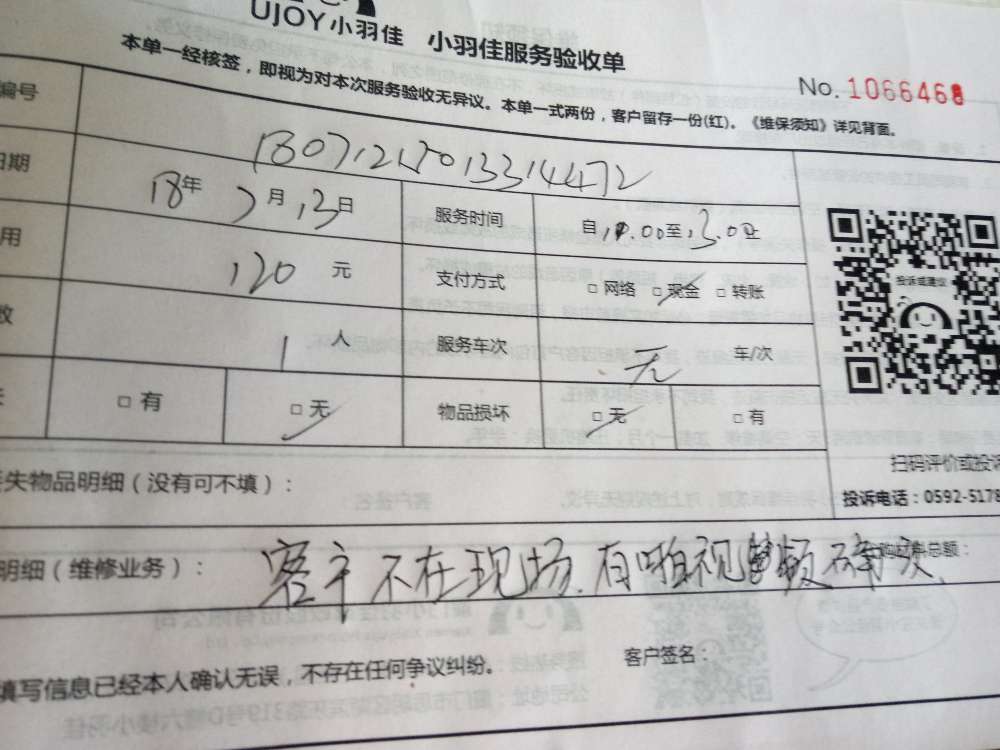 UJOY小羽佳 小羽佳服务验收单
本单一经核签，即视为对本次服务验收无异议。本单一式两份，客户留存一份(红)。《维保须知》详见背面。
No.1066468
编号
日期 18年 7月13日 服务时间 自 至
用 120 元 支付方式 □网络 □现金 □转账
数 1 人 服务车次 无 车/次
□有 □无 物品损坏 □无 □有
投诉或建议
扫码评价或投诉
失物品明细（没有可不填）：
投诉电话：0592-5178
明细（维修业务）： 客户不在现场.有 视 频确 料总额：
填写信息已经本人确认无误，不存在任何争议纠纷。 客户签名：